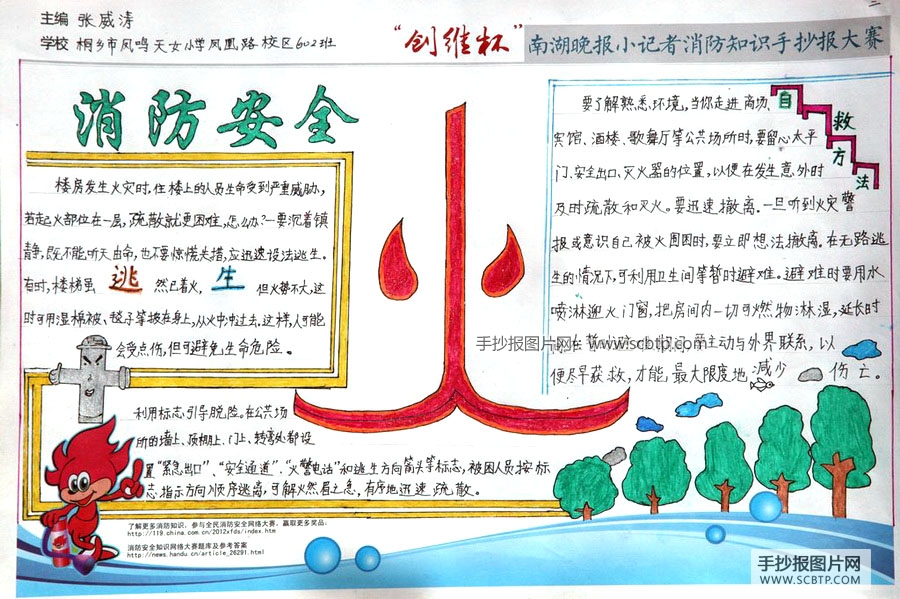 主编 张威涛
学校 桐乡市凤鸣天女小学凤凰路校区602班
“创维杯”南湖晚报小记者消防知识手抄报大赛
消防安全
楼房发生火灾时,住楼上的人员生命受到严重威胁,
若起火部位在一层,疏散就更困难,怎么办?一要沉着镇
静,既不能听天由命,也不要惊慌失措,应迅速设法逃生。
有时,楼梯虽 逃 然已着火, 生 但火势不大,这
时可用湿棉被、毯子等披在身上,从火中冲过去,这样,人可能
会受点伤,但可避免生命危险。
利用标志引导脱险。在公共场
所的墙上、顶棚上、门上、转弯处都设
置“紧急出口”、“安全通道”、“火警电话”和逃生方向箭头等标志,被困人员按标
志指示方向顺序逃离,可解火然眉之急,有序地迅速疏散。
自救方法
要了解熟悉环境,当你走进商场、
宾馆、酒楼、歌舞厅等公共场所时,要留心太平
门、安全出口、灭火器的位置,以便在发生意外时
及时疏散和灭火。要迅速撤离。一旦听到火灾警
报或意识自己被火围困时,要立即想法撤离。在无路逃
生的情况下,可利用卫生间等暂时避难。避难时要用水
喷淋迎火门窗,把房间内一切可燃物淋湿,延长时
间在 主动与外界联系,以
便尽早获救,才能最大限度地减少伤亡。
手抄报图片网:www.scbtp.com
了解更多消防知识、参与全民消防安全网络大赛、赢取更多奖品:
http://119.china.com.cn/2012xfds/index.htm
消防安全知识网络大赛题库及参考答案
http://news.handu.cn/article_26291.html
手抄报图片网
WWW.SCBTP.COM